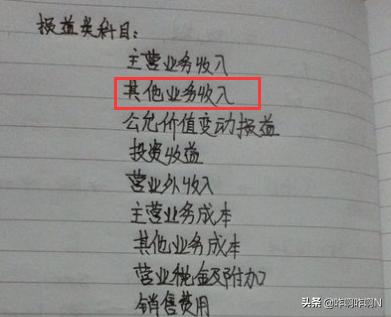 损益类科目:
主营业务收入
其他业务收入
公允价值变动损益
投资收益
营业外收入
主营业务成本
其他业务成本
营业税金及附加
销售费用
头条 @咋啊咋啊N